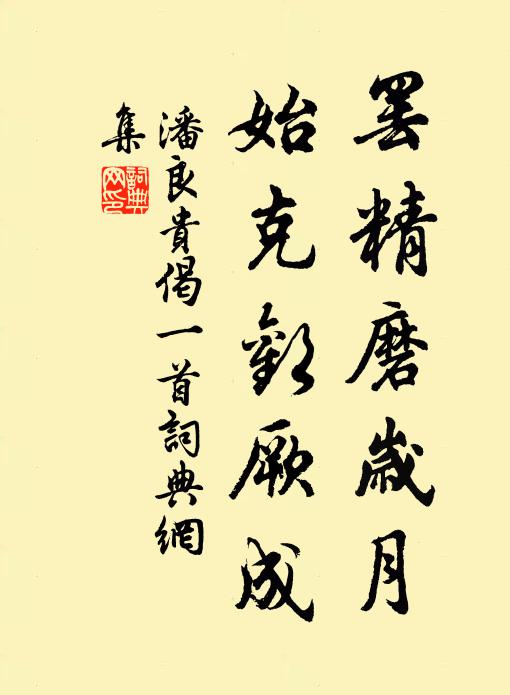 罢精磨歲月
始克觀厥成
潘良貴偈一首詞典網
集
詞典网印